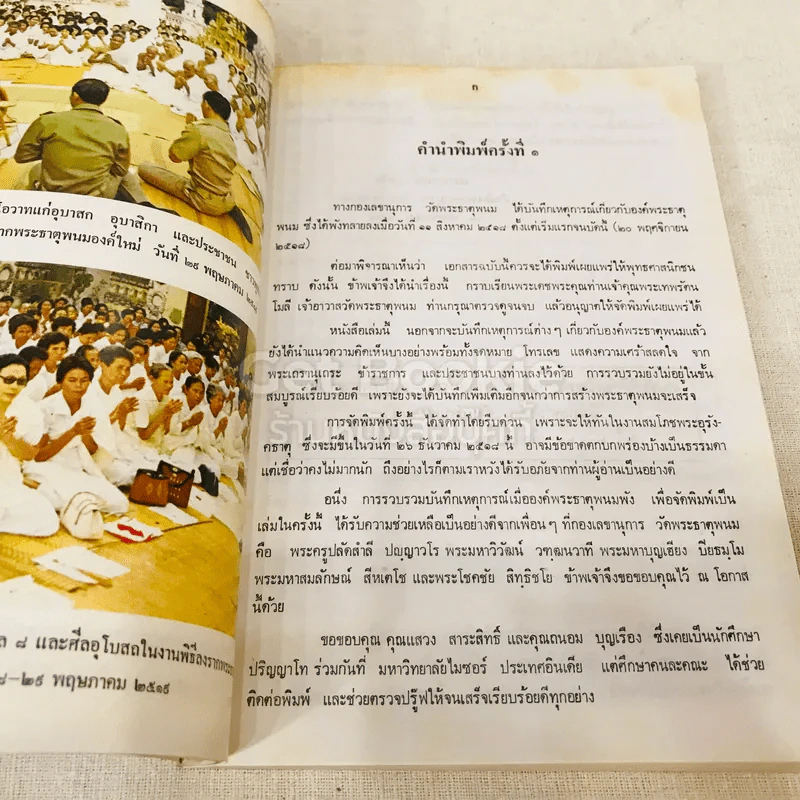 โอวาทแก่อุบาสก อุบาสิกา และประชาชน
ากพระธาตุพนมองค์ใหม่ วันที่ ๒๙ พฤษภาคม
ล ๘ และศีลอุโบสถในงานพิธีลงราก
๘-๒๙ พฤษภาคม ๒๕๑๙
ก
คำนำพิมพ์ครั้งที่ ๑
ทางกองเลขานุการ วัดพระธาตุพนม ได้บันทึกเหตุการณ์เกี่ยวกับองค์พระธาตุ
พนม ซึ่งได้พังทลายลงเมื่อวันที่ ๑๑ สิงหาคม ๒๕๑๘ ตั้งแต่เริ่มแรกจนบัดนี้ (๒๐ พฤศจิกายน
๒๕๑๘)
ต่อมาพิจารณาเห็นว่า เอกสารฉบับนี้ควรจะได้พิมพ์เผยแพร่ให้พุทธศาสนิกชน
ทราบ ดังนั้น ข้าพเจ้าจึงได้นำเรื่องนี้ กราบเรียนพระเดชพระคุณท่านเจ้าคุณพระเทพรัตน
โมลี เจ้าอาวาสวัดพระธาตุพนม ท่านกรุณาตรวจดูจนจบ แล้วอนุญาตให้จัดพิมพ์เผยแพร่ได้
หนังสือเล่มนี้ นอกจากจะบันทึกเหตุการณ์ต่างๆ เกี่ยวกับองค์พระธาตุพนมแล้ว
ยังได้นำแนวความคิดเห็นบางอย่างพร้อมทั้งจดหมาย โทรเลข แสดงความเศร้าสลดใจ จาก
พระเถรานุเถระ ข้าราชการ และประชาชนบางท่านลงไว้ด้วย การรวบรวมยังไม่อยู่ในขั้น
สมบูรณ์เรียบร้อยดี เพราะยังจะได้บันทึกเพิ่มเติมอีกจนกว่าการสร้างพระธาตุพนมจะเสร็จ
การจัดพิมพ์ครั้งนี้ ได้จัดทำโดยรีบด่วน เพราะจะให้ทันในงานสมโภชพระอุรัง-
คธาตุ ซึ่งจะมีขึ้นในวันที่ ๒๖ ธันวาคม ๒๕๑๘ นี้ อาจมีข้อขาดตกบกพร่องบ้างเป็นธรรมดา
แต่เชื่อว่าคงไม่มากนัก ถึงอย่างไรก็ตามเราหวังได้รับอภัยจากท่านผู้อ่านเป็นอย่างดี
อนึ่ง การรวบรวมบันทึกเหตุการณ์เมื่อองค์พระธาตุพนมพัง เพื่อจัดพิมพ์เป็น
เล่มในครั้งนี้ ได้รับความช่วยเหลือเป็นอย่างดีจากเพื่อนๆ ที่กองเลขานุการ วัดพระธาตุพนม
คือ พระครูปลัดสำลี ปญฺญาวโร พระมหาวิวัฒน์ วฑฺฒนวาที พระมหาบุญเฮียง ปิยธมฺโม
พระมหาสมลักษณ์ สีหเตโช และพระโชคชัย สิทฺธิชโย ข้าพเจ้าจึงขอขอบคุณไว้ ณ โอกาส
นี้ด้วย
ขอขอบคุณ คุณแสวง สาระสิทธิ์ และคุณถนอม บุญเรือง ซึ่งเคยเป็นนักศึกษา
ปริญญาโท ร่วมกันที่ มหาวิทยาลัยไมซอร์ ประเทศอินเดีย แต่ศึกษาคนละคณะ ได้ช่วย
ติดต่อพิมพ์ และช่วยตรวจปรู๊ฟให้จนเสร็จเรียบร้อยดีทุกอย่าง